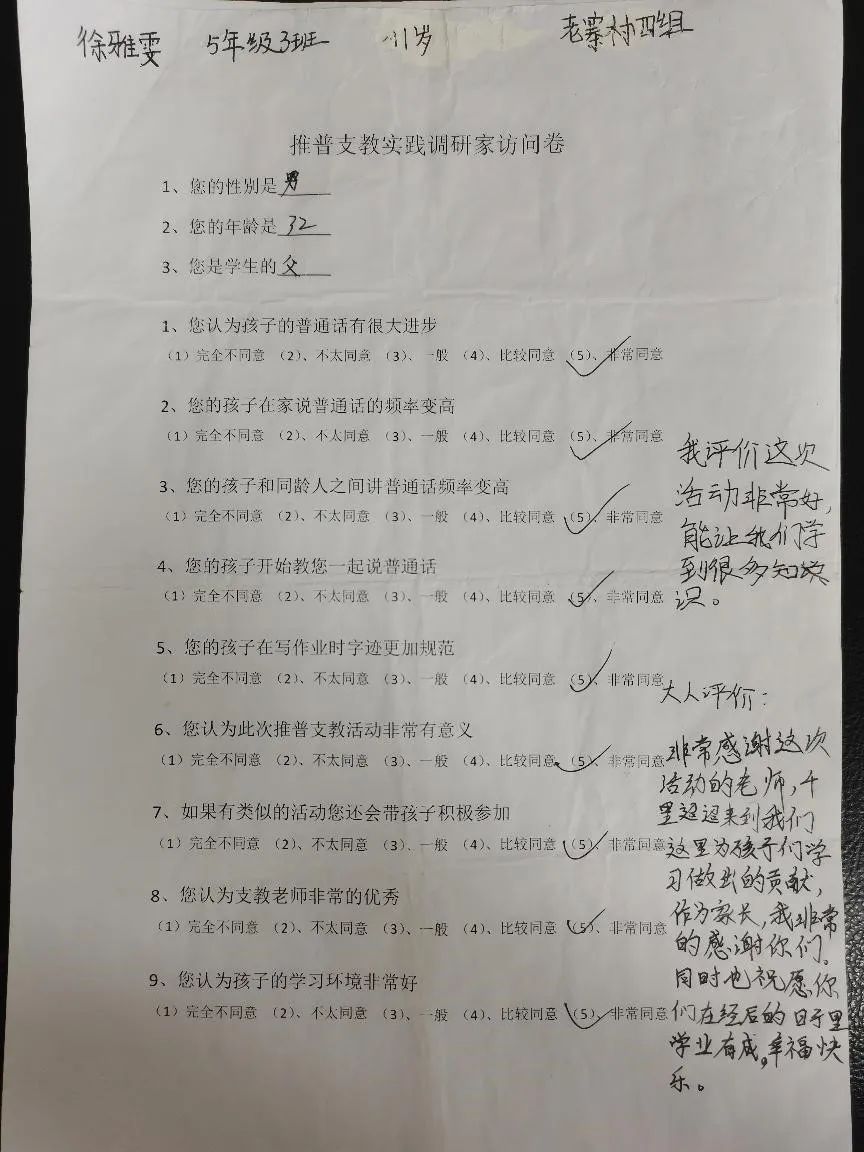 徐雅雯 5年级3班 11岁 老寨村四组
推普支教实践调研家访问卷
1、您的性别是男
2、您的年龄是32
3、您是学生的父
1、您认为孩子的普通话有很大进步
（1）完全不同意（2）、不太同意（3）、一般（4）、比较同意（5）、非常同意
2、您的孩子在家说普通话的频率变高
（1）完全不同意（2）、不太同意（3）、一般（4）、比较同意（5）、非常同意
3、您的孩子和同龄人之间讲普通话频率变高
（1）完全不同意（2）、不太同意（3）、一般（4）、比较同意（5）、非常同意
4、您的孩子开始教您一起说普通话
（1）完全不同意（2）、不太同意（3）、一般（4）、比较同意（5）、非常同意
5、您的孩子在写作业时字迹更加规范
（1）完全不同意（2）、不太同意（3）、一般（4）、比较同意（5）、非常同意
6、您认为此次推普支教活动非常有意义
（1）完全不同意（2）、不太同意（3）、一般（4）、比较同意（5）、非常同意
7、如果有类似的活动您还会带孩子积极参加
（1）完全不同意（2）、不太同意（3）、一般（4）、比较同意（5）、非常同意
8、您认为支教老师非常的优秀
（1）完全不同意（2）、不太同意（3）、一般（4）、比较同意（5）、非常同意
9、您认为孩子的学习环境非常好
（1）完全不同意（2）、不太同意（3）、一般（4）、比较同意（5）、非常同意
我评价这次
活动非常好，
能让我们学
到很多知
识。
大人评价：
非常感谢这次
活动的老师，千
里迢迢来到我们
这里为孩子们学
习做出的贡献，
作为家长，我非常
的感谢你们。
同时也祝愿你
们在经后的日子里
学业有成，幸福快
乐。